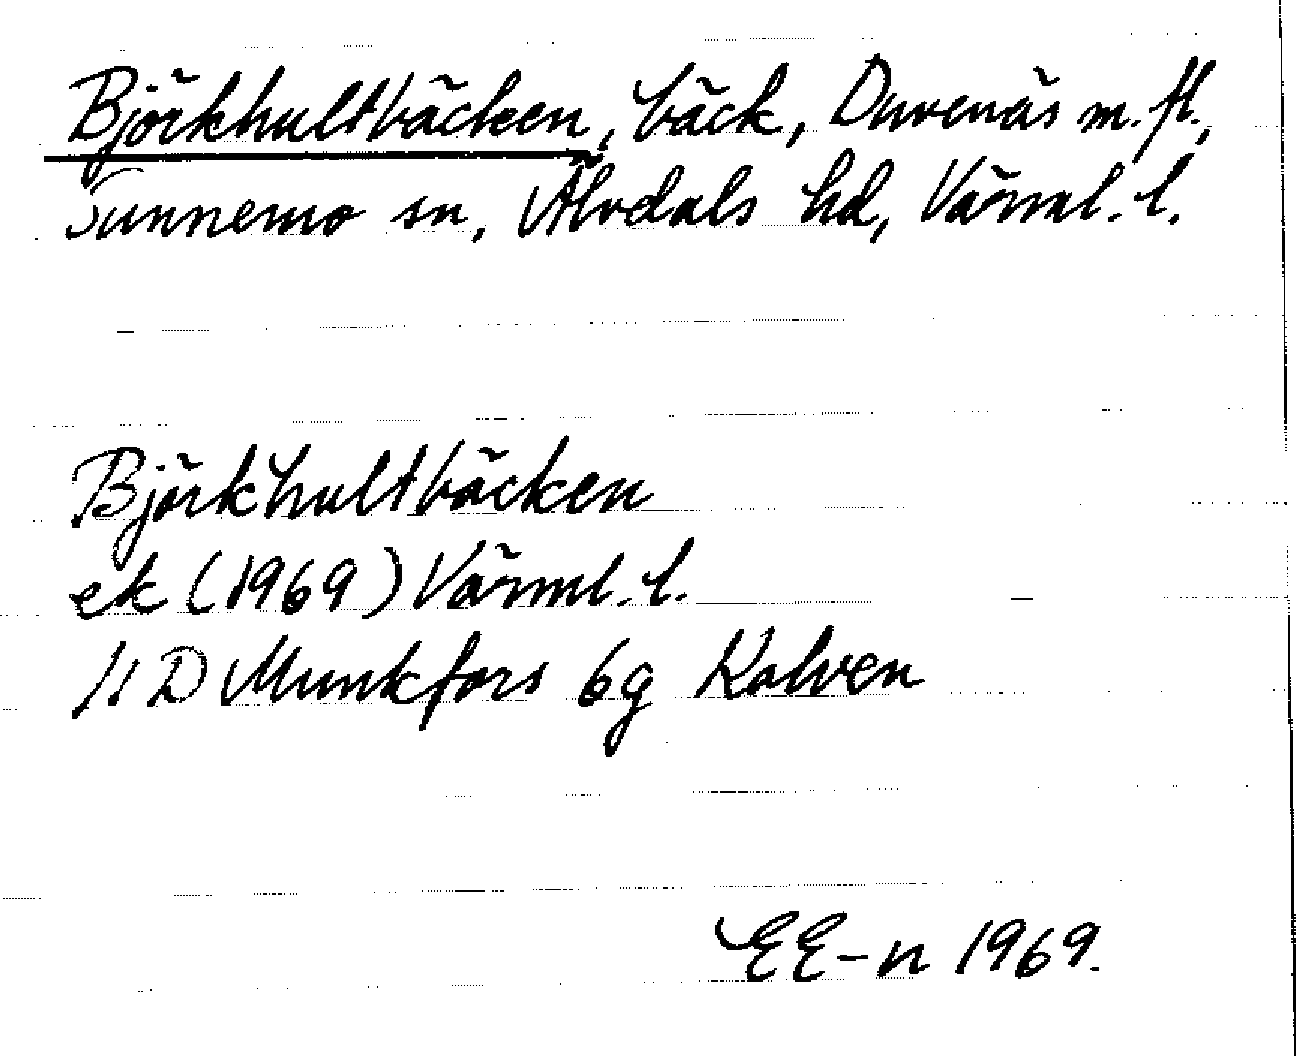 Björkhultbäcken, bäck, Duvenäs m.fl.,
Sunnemo sn, Älvdals hd, Värml. l.
Björkhultbäcken
ek (1969) Värml. l.
11 D Munkfors 6g Kalven
EE-n 1969.